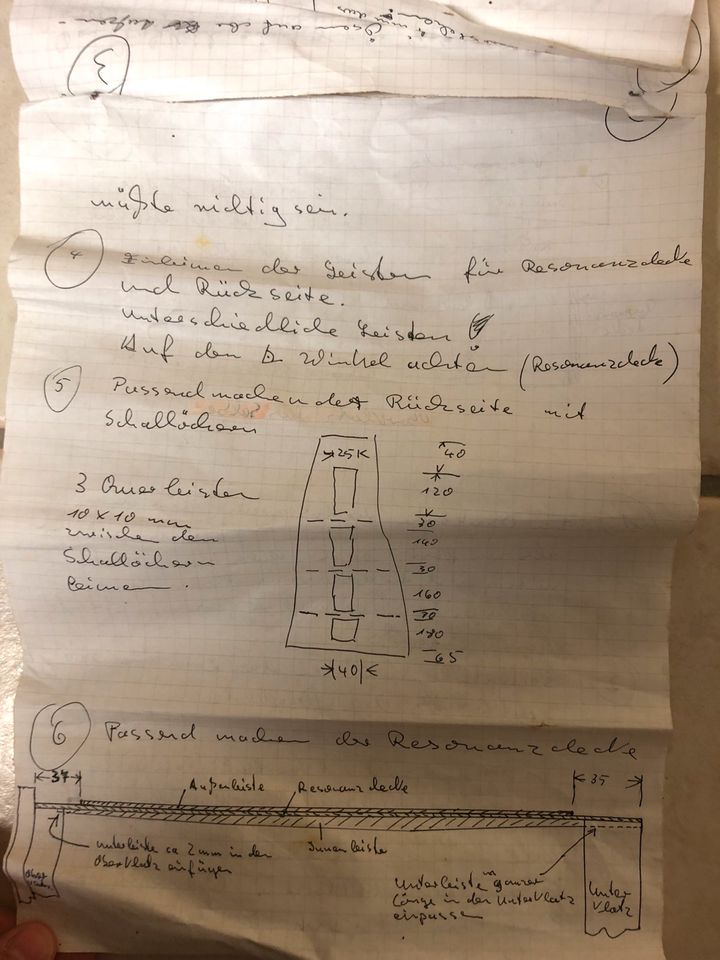 3
müßte richtig sein.
4 Einleimen der Leisten für Resonanzdecke
und Rückseite.
Unterschiedliche Leisten
Auf den Winkel achten (Resonanzdecke)
5 Passend machen der Rückseite mit
Schallöchern
3 Querleisten
10 x 10 mm
zwischen den
Schallöchern
leimen.
25
40
120
30
140
30
160
30
180
65
40
6 Passend machen der Resonanzdecke
37
Außenleiste
Resonanzdecke
35
Unterleiste ca 2 mm in den
Oberklotz einfügen
Innenleiste
Unterleiste in ganzer
Länge in den Unterklotz
einpassen
Unter
klotz